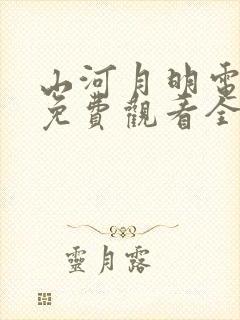 山河月明電
免費觀看全
靈月露